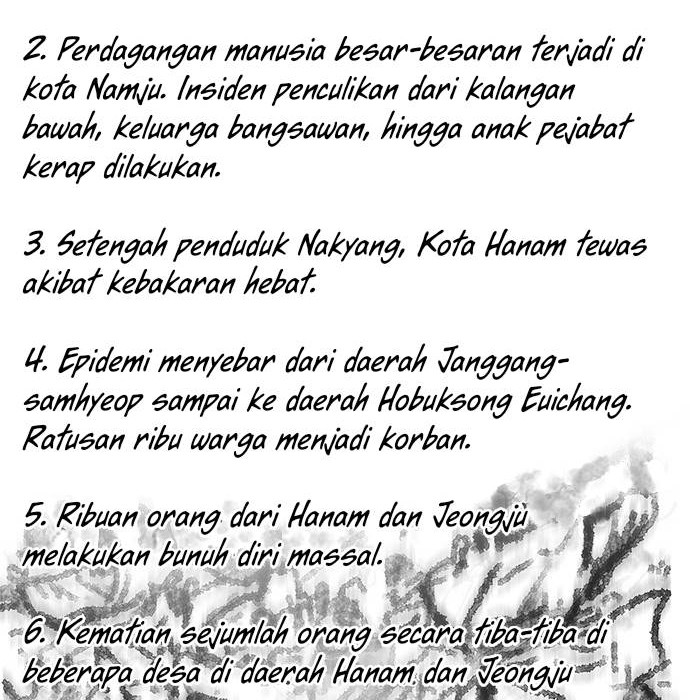 2. Perdagangan manusia besar-besaran terjadi di
kota Namju. Insiden penculikan dari kalangan
bawah, keluarga bangsawan, hingga anak pejabat
kerap dilakukan.
3. Setengah penduduk Nakyang, Kota Hanam tewas
akibat kebakaran hebat.
4. Epidemi menyebar dari daerah Janggang-
samhyeop sampai ke daerah Hobuksong Euichang.
Ratusan ribu warga menjadi korban.
5. Ribuan orang dari Hanam dan Jeongju
melakukan bunuh diri massal.
6. Kematian sejumlah orang secara tiba-tiba di
beberapa desa di daerah Hanam dan Jeongju